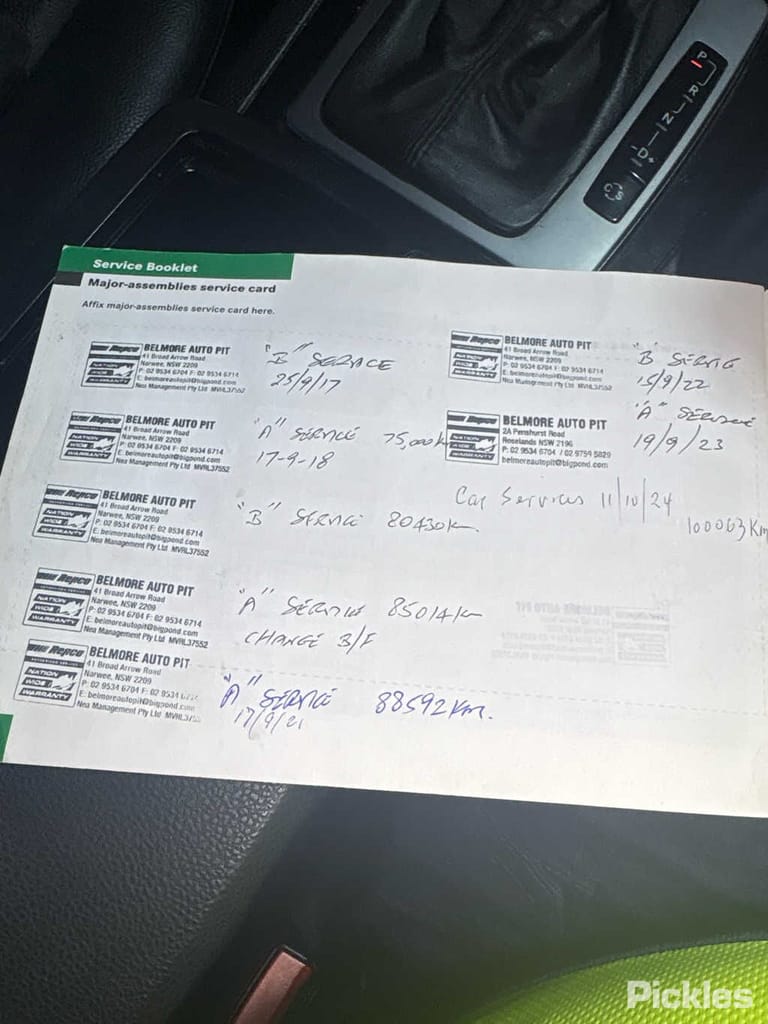 P
R
N
D
C S
Service Booklet
Major-assemblies service card
Affix major-assemblies service card here.
Repco
NATION
WIDE
WARRANTY
BELMORE AUTO PIT
41 Broad Arrow Road
Narwee, NSW 2209
P: 02 9534 6704 F: 02 9534 6714
E: belmoreautopit@bigpond.com
Nea Management Pty Ltd MVRL37552
"B" SERVICE
25/9/17
Repco
NATION
WIDE
WARRANTY
BELMORE AUTO PIT
41 Broad Arrow Road
Narwee, NSW 2209
P: 02 9534 6704 F: 02 9534 6714
E: belmoreautopit@bigpond.com
Nea Management Pty Ltd MVRL37552
"A" SERVICE 75,000K
17-9-18
Repco
NATION
WIDE
WARRANTY
BELMORE AUTO PIT
41 Broad Arrow Road
Narwee, NSW 2209
P: 02 9534 6704 F: 02 9534 6714
E: belmoreautopit@bigpond.com
Nea Management Pty Ltd MVRL37552
"B" SERVICE 80430K
Repco
NATION
WIDE
WARRANTY
BELMORE AUTO PIT
41 Broad Arrow Road
Narwee, NSW 2209
P: 02 9534 6704 F: 02 9534 6714
E: belmoreautopit@bigpond.com
Nea Management Pty Ltd MVRL37552
"A" SERVICE 85014K
CHANGE B/F
Repco
NATION
WIDE
WARRANTY
BELMORE AUTO PIT
41 Broad Arrow Road
Narwee, NSW 2209
P: 02 9534 6704 F: 02 9534
E: belmoreautopit@bigpond.com
Nea Management Pty Ltd
"A" SERVICE 88592Km.
17/9/21
Repco
NATION
WIDE
WARRANTY
BELMORE AUTO PIT
41 Broad Arrow Road
Narwee, NSW 2209
P: 02 9534 6704 F: 02 9534 6714
E: belmoreautopit@bigpond.com
Nea Management Pty Ltd MVRL37552
"B" SERVICE
15/9/22
Repco
NATION
WIDE
WARRANTY
BELMORE AUTO PIT
2A Penshurst Road
Roselands NSW 2196
P: 02 9534 6704 / 02 9759 5829
belmoreautopit@bigpond.com
"A" SERVICE
19/9/23
Car Services 11/10/24
100063Km
Pickles